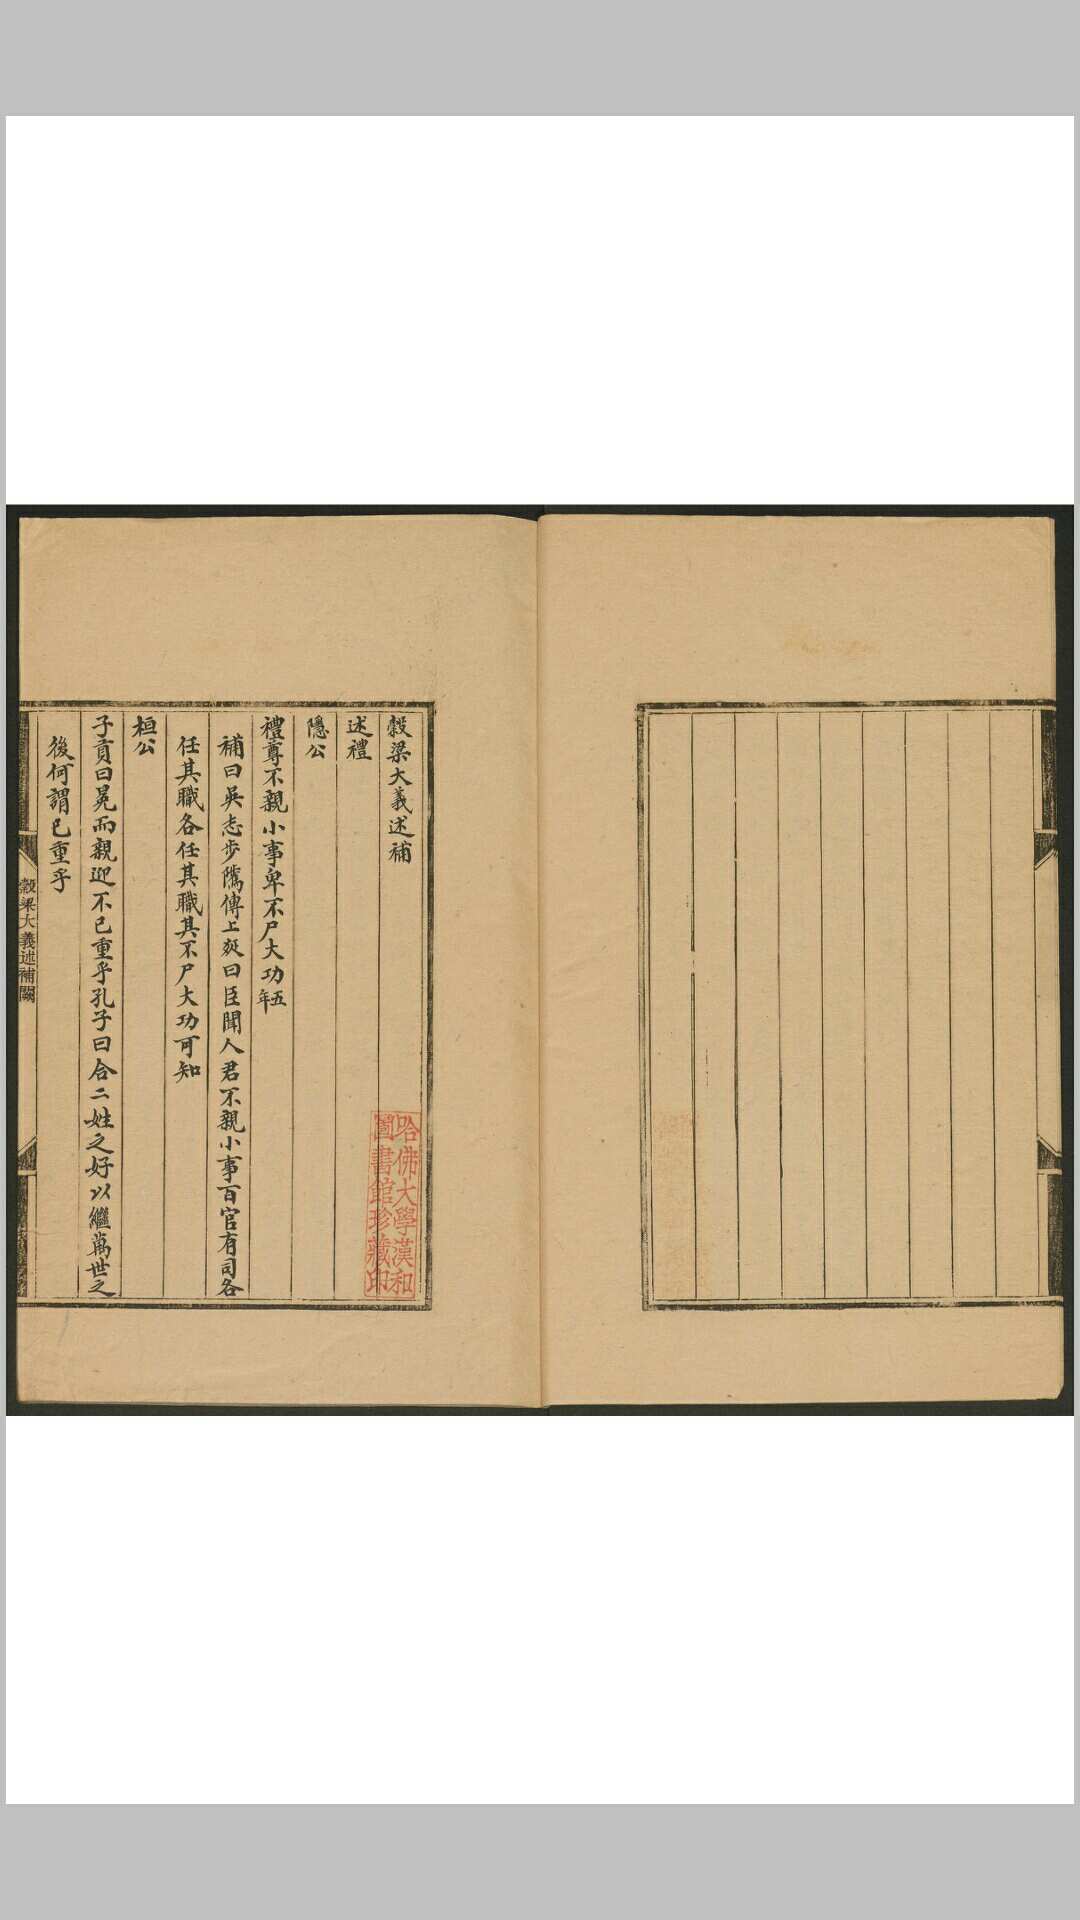 穀梁大義述補
述禮
隱公
禮尊不親小事卑不尸大功五年
補曰吳志步隲傳上疏曰臣聞人君不親小事百官有司各
任其職各任其職其不尸大功可知
桓公
子貢曰冕而親迎不已重乎孔子曰合二姓之好以繼萬世之
後何謂已重乎
穀梁大義述補闕
哈佛大學漢和
圖書館珍藏印